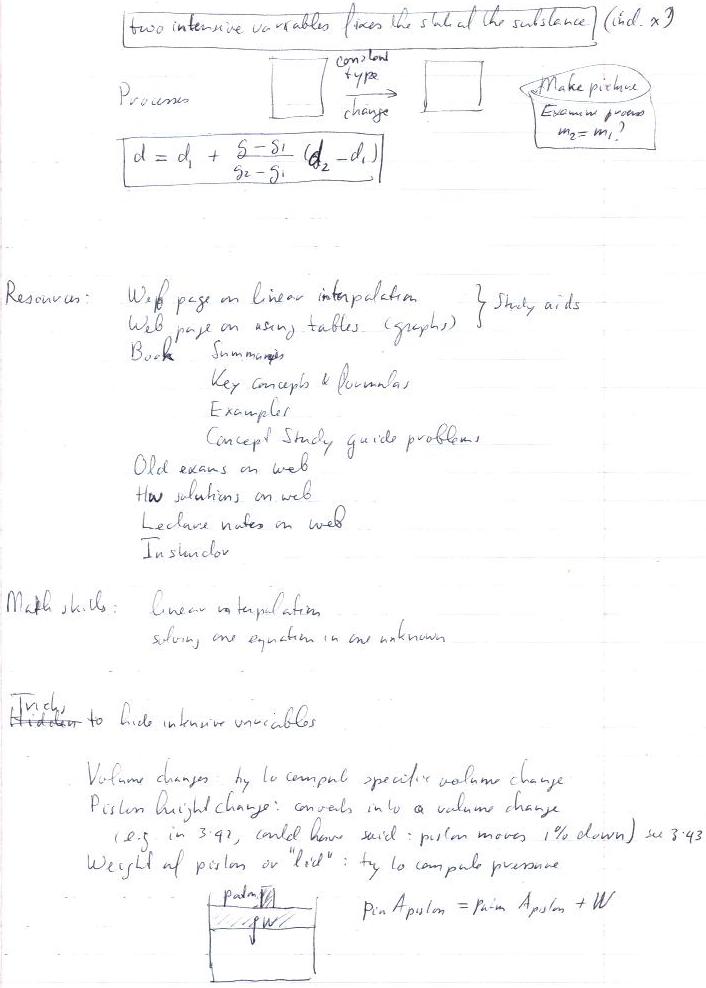 two intensive variables fixes the state of the substance (incl. x?)
constant
type
Processes
change
Make picture
Examine process
m₂ = m₁?
d = d₁ + (g − g₁)/(g₂ − g₁) (d₂ − d₁)
Resources: Web page on linear interpolation
Web page on using tables (graphs) } Study aids
Book Summaries
Key concepts & formulas
Examples
Concept Study guide problems
Old exams on web
HW solutions on web
Lecture notes on web
Instructor
Math skills: linear interpolation
solving one equation in one unknown
Tricks
Hidden to hide intensive variables
Volume changes: try to compute specific volume change
Piston height change: converts into a volume change
(e.g. in 3.92, could have said: piston moves 1% down) see 3.93
Weight of piston or "lid": try to compute pressure
patm
W
pin Apiston = patm Apiston + W